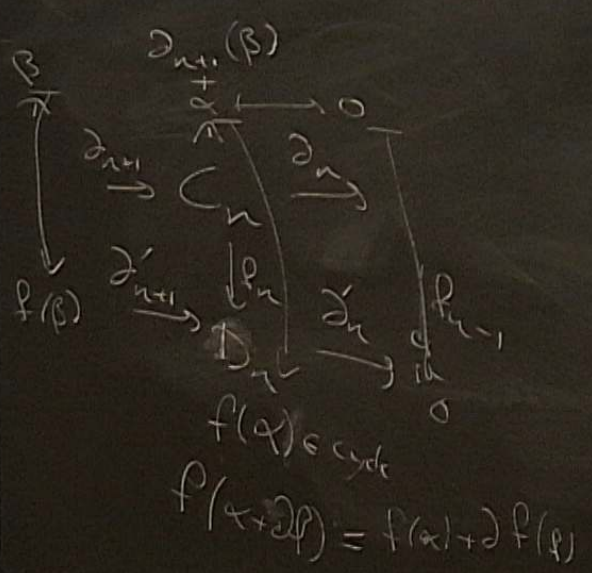 ∂ₙ₊₁(β)
β
+
α ⟼ 0
∂ₙ₊₁ → Cₙ ∂ₙ →
↓ fₙ fₙ₋₁
f(β) ∂'ₙ₊₁ → Dₙ ∂'ₙ →
0
f(α) ∈ cycle
f(α+∂β) = f(α)+∂f(β)